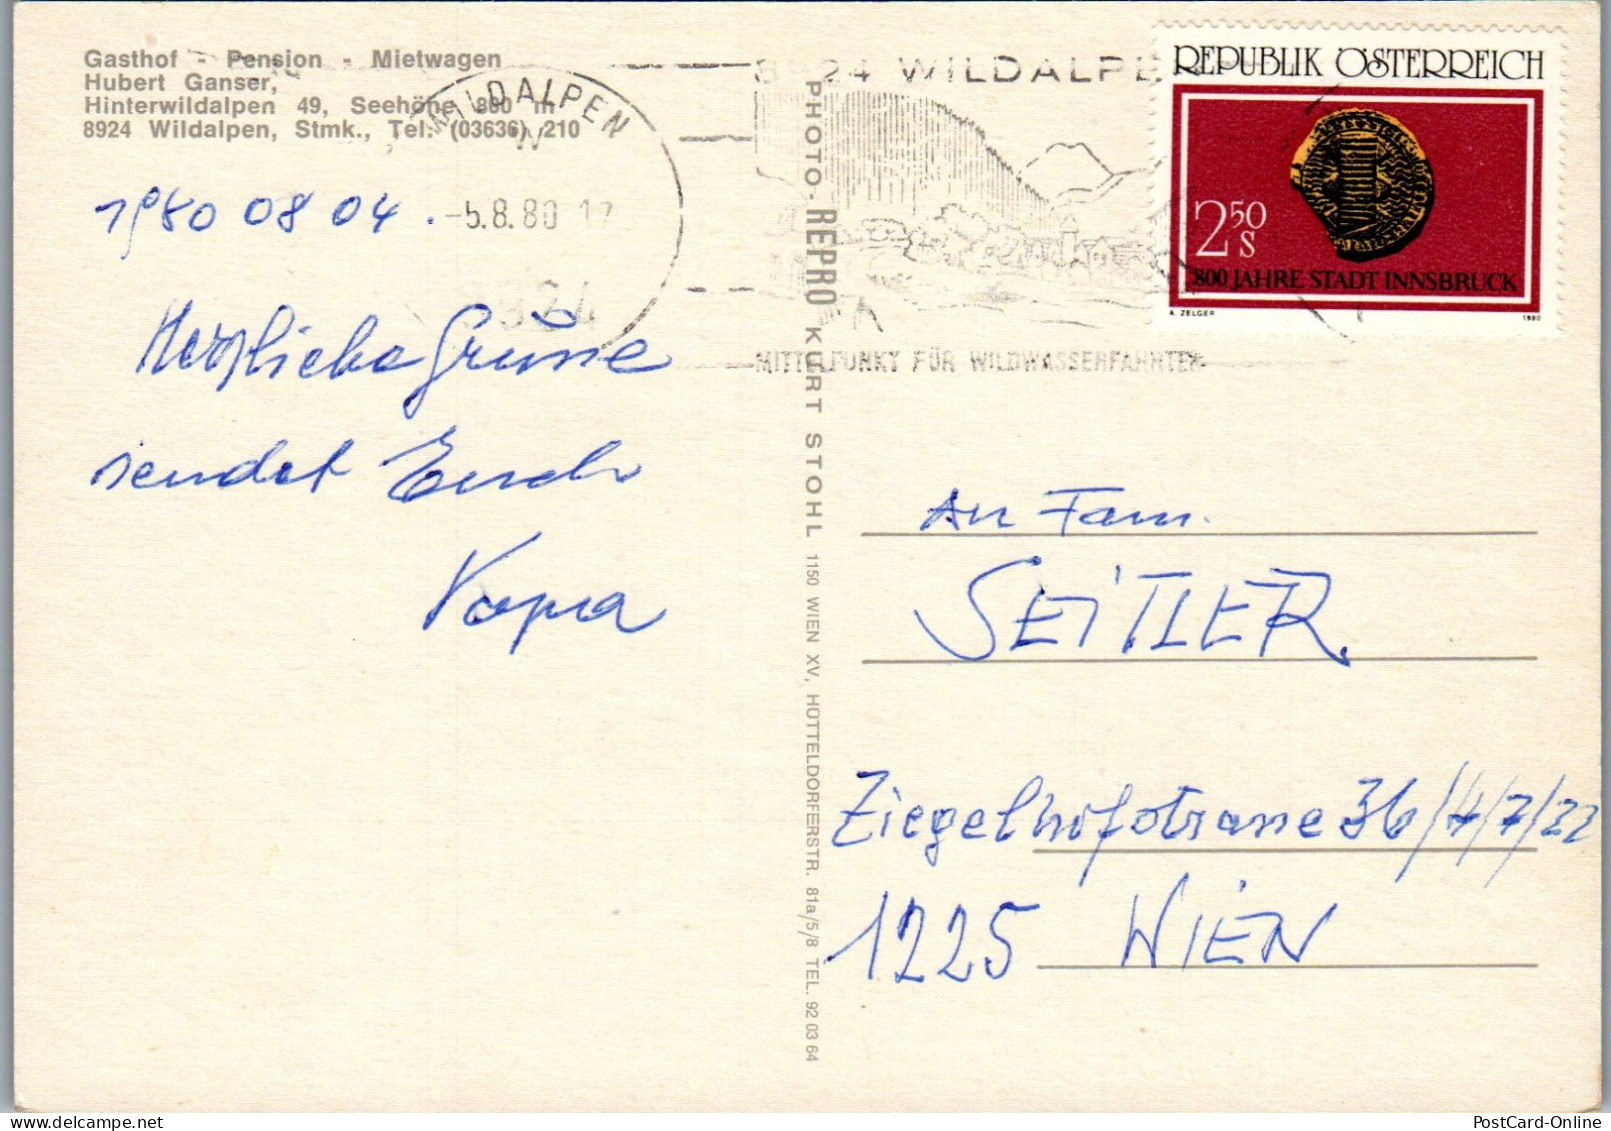 Gasthof - Pension - Mietwagen
Hubert Ganser,
Hinterwildalpen 49, Seehöhe 800 m
8924 Wildalpen, Stmk., Tel. (03636) 210
WILDALPEN
-5.8.80 17
8924
8924 WILDALPE
MITTELPUNKT FÜR WILDWASSERFAHRTEN
REPUBLIK ÖSTERREICH
250
S
800 JAHRE STADT INNSBRUCK
A. ZELGER
1980
1980 08 04.
Herzliche Grüsse
sendet Euch
PHOTO-REPRO KURT STOHL 1150 WIEN XV, HÜTTELDORFERSTR. 81a/5/8 TEL. 92 03 64
An Fam.
SEITLER
Ziegelhofstrasse 36/4/7/22
1225 WIEN
PostCard-Online